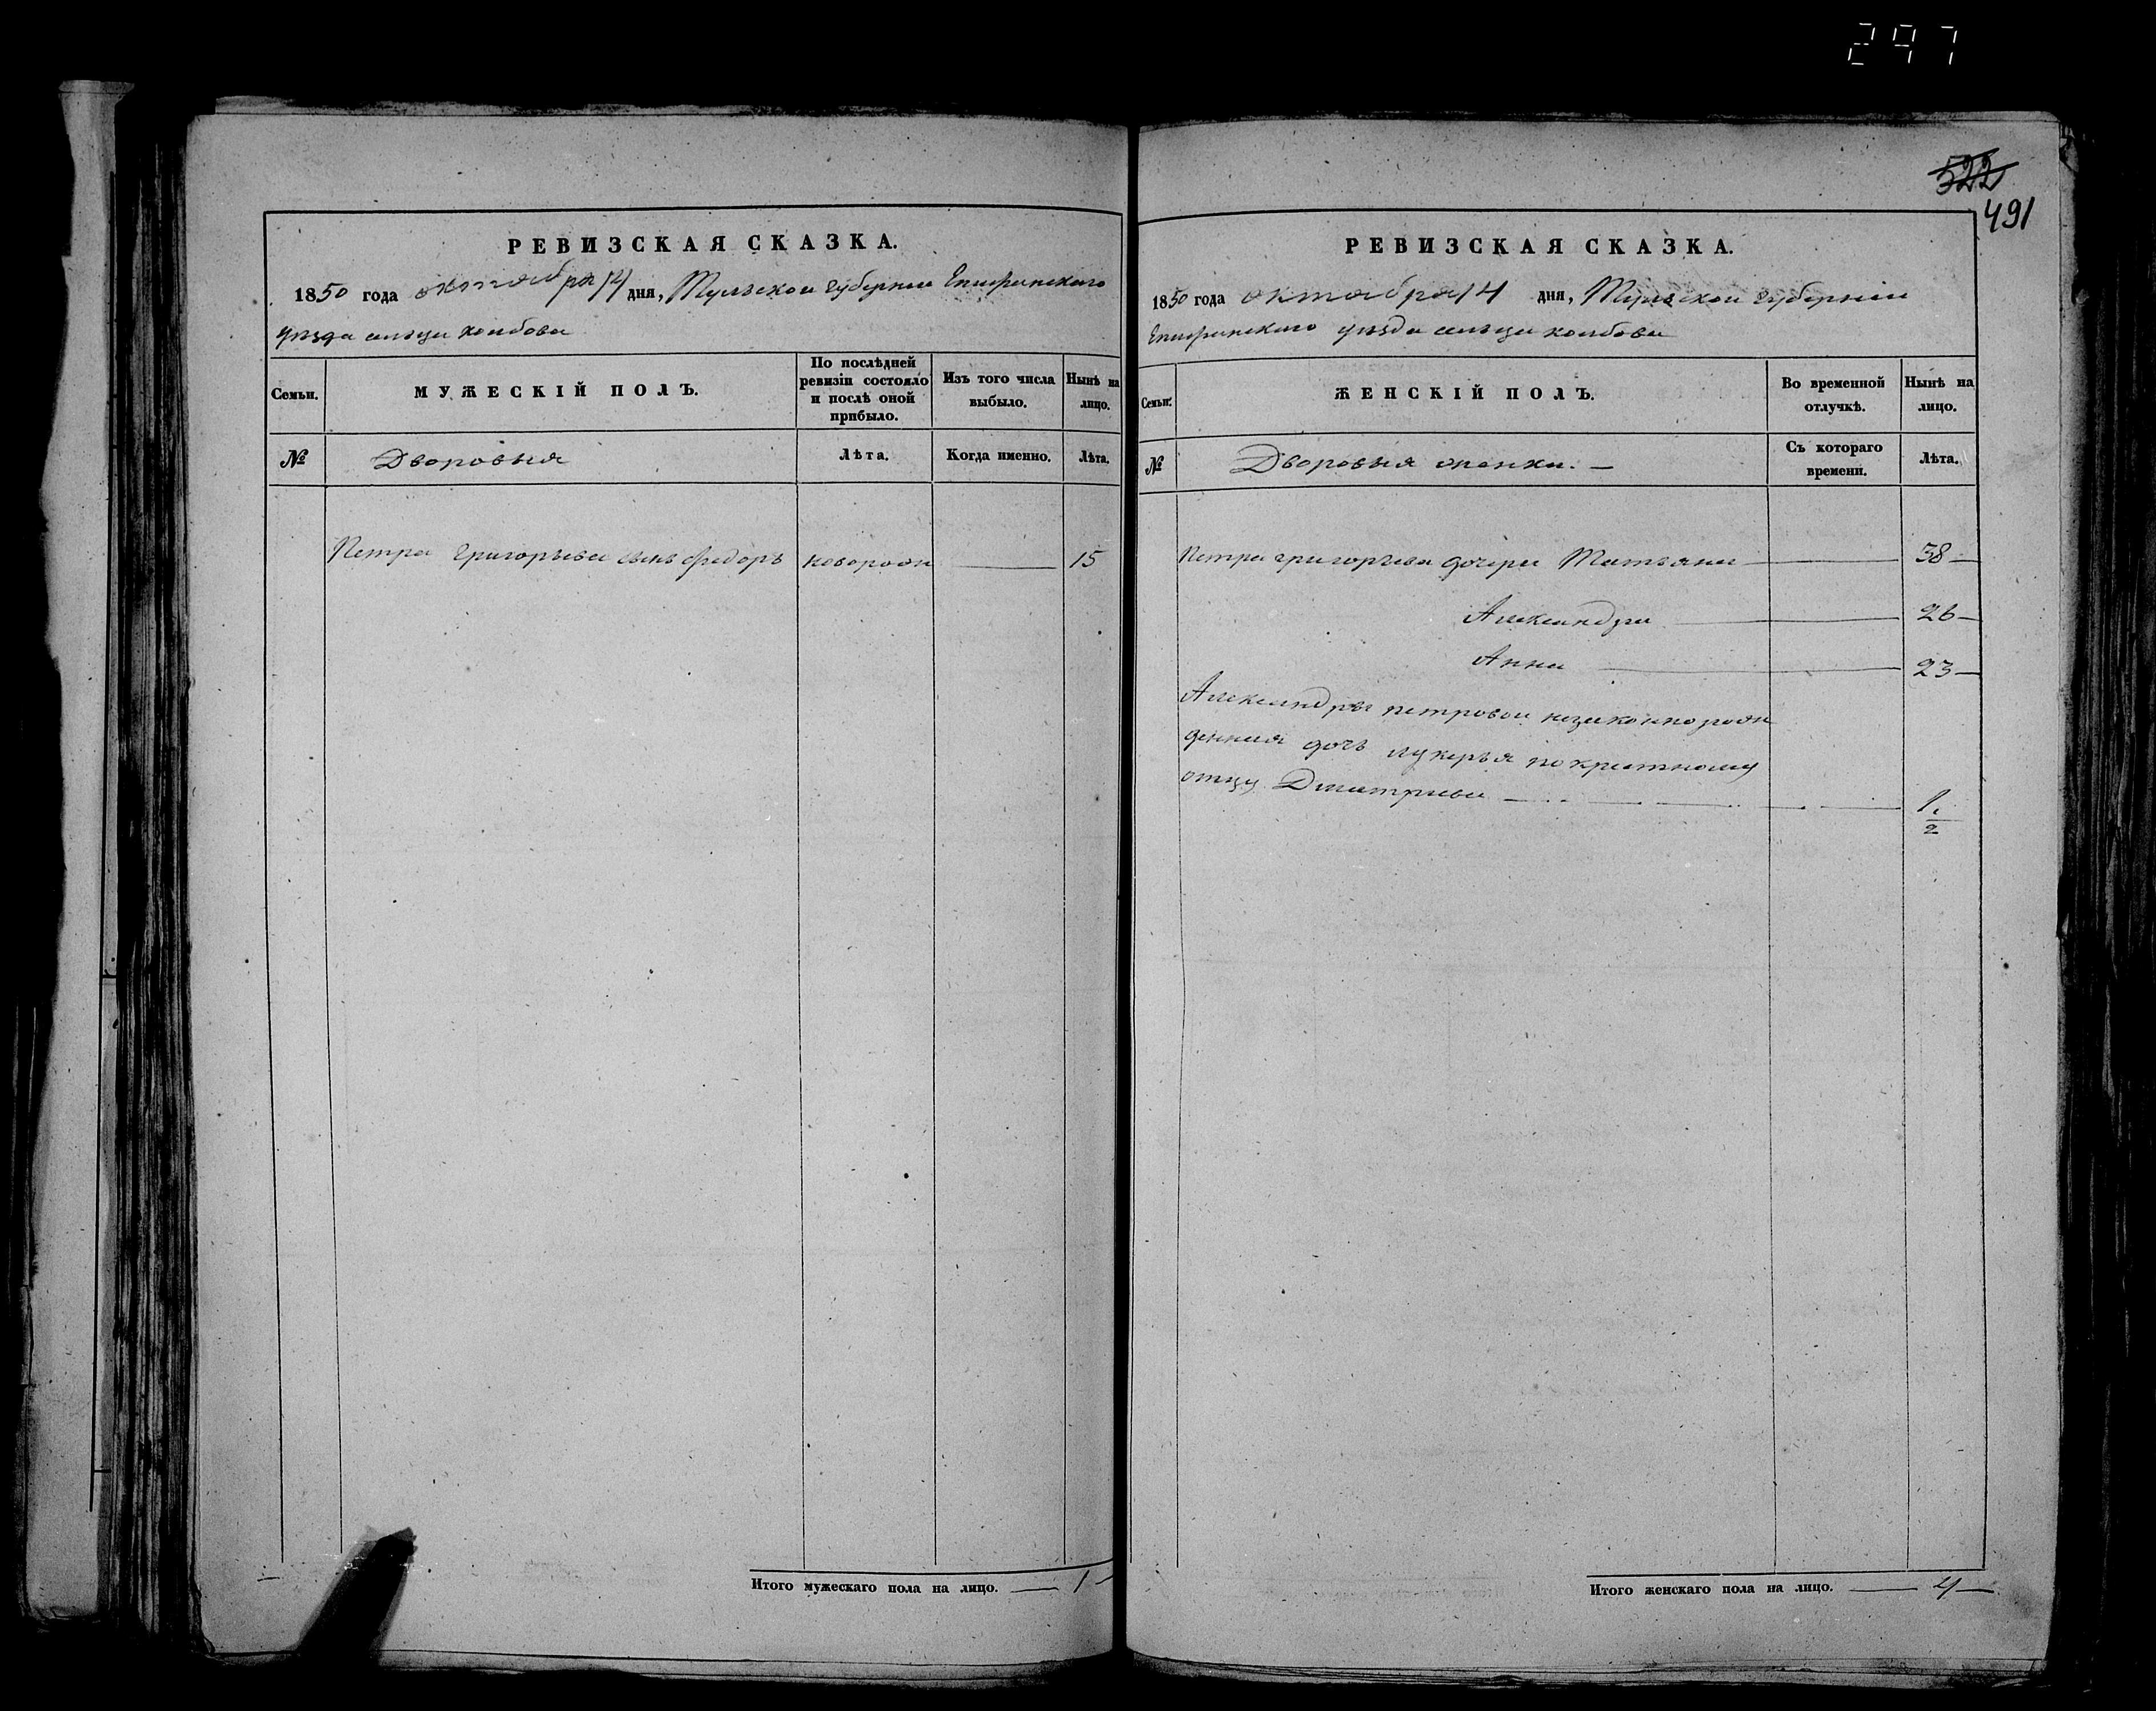 297
522
491
РЕВИЗСКАЯ СКАЗКА.
1850 года октября 14 дня, Тульской губернии Епифанского
уѣзда сельца
МУЖЕСКІЙ ПОЛЪ.
Семьи.
По послѣдней
ревизіи состояло
и послѣ оной
прибыло.
Изъ того числа
выбыло.
Нынѣ на
лицо.
№
Дворовыя
Лѣта.
Когда именно.
Лѣта.
Петра Григорьева сынъ Федоръ новорож 15
Итого мужескаго пола на лицо. 1
РЕВИЗСКАЯ СКАЗКА.
1850 года октября 14 дня, Тульской губерніи
Епифанского уѣзда сельца
Семьи.
ЖЕНСКІЙ ПОЛЪ.
Во временной
отлучкѣ.
Нынѣ на
лицо.
№
Дворовыя женки.
Съ котораго
времени.
Лѣта.
Петра григорьева дочери Татьяна 38
Александра 26
Анна 23
Александры петровой незаконнорож
денная дочь лукерья по крестному
отцу Дмитриева 1/2
Итого женскаго пола на лицо. 4